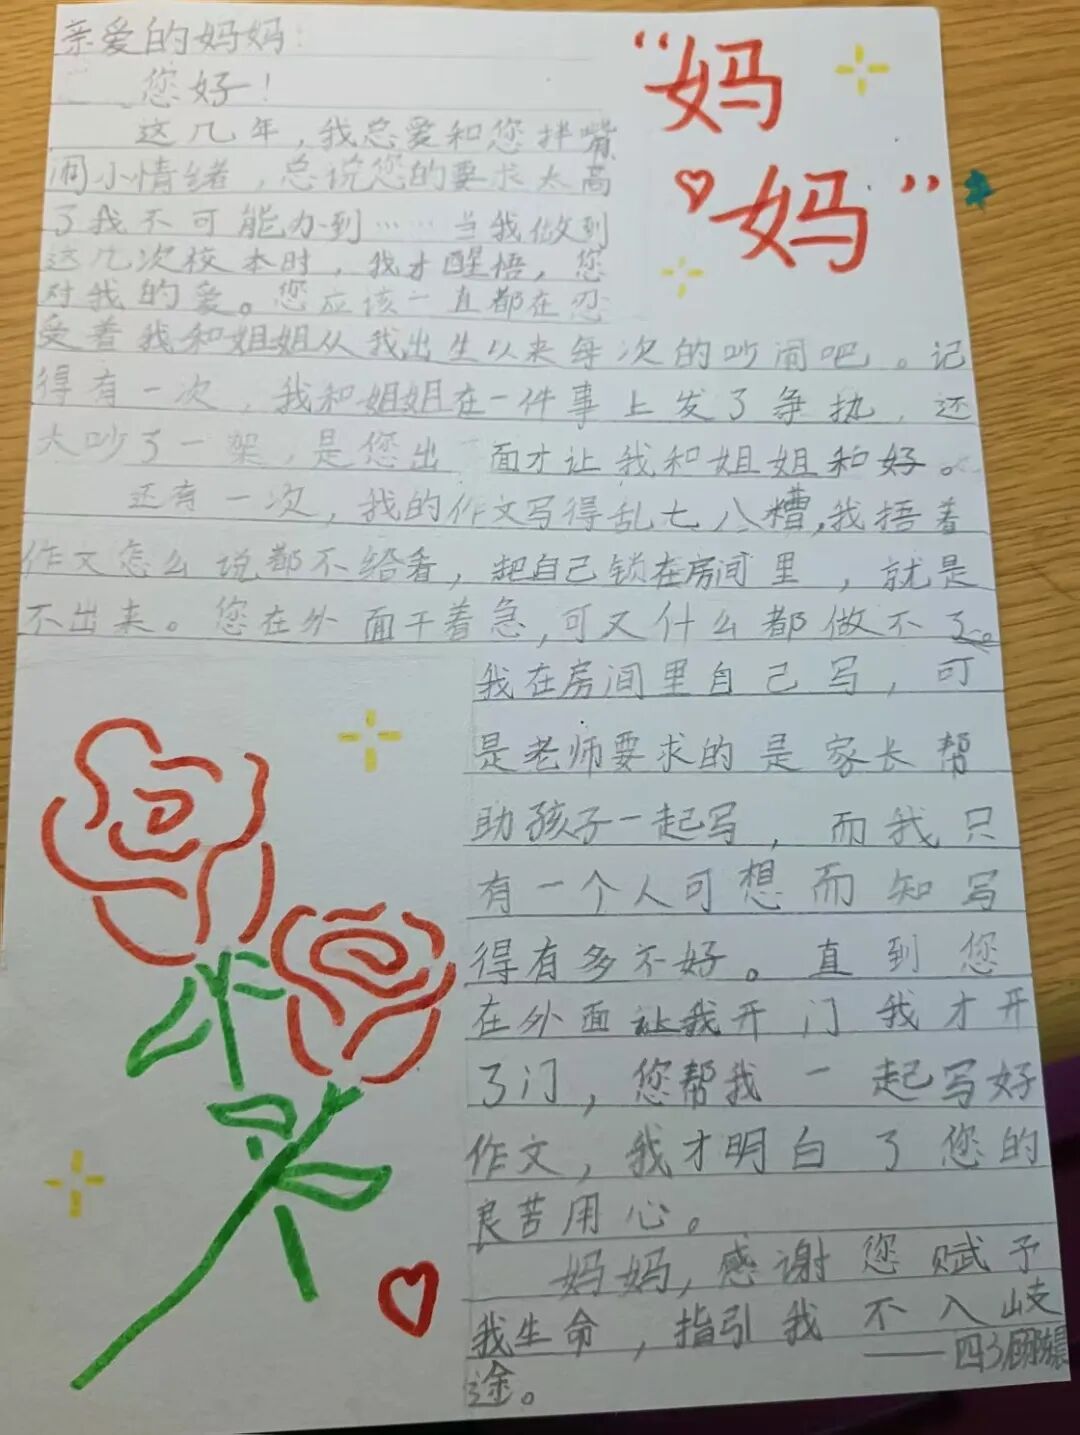 亲爱的妈妈：
您好！
“妈
妈”
这几年，我总爱和您拌嘴
闹小情绪，总说您的要求太高
了我不可能办到……当我做到
这几次校本时，我才醒悟，您
对我的爱。您应该一直都在忍
受着我和姐姐从我出生以来每次的吵闹吧。记
得有一次，我和姐姐在一件事上发了争执，还
大吵了一架，是您出面才让我和姐姐和好。
还有一次，我的作文写得乱七八糟，我捂着
作文怎么说都不给看，把自己锁在房间里，就是
不出来。您在外面干着急，可又什么都做不了。
我在房间里自己写，可
是老师要求的是家长帮
助孩子一起写，而我只
有一个人可想而知写
得有多不好。直到您
在外面让我开门我才开
了门，您帮我一起写好
作文，我才明白了您的
良苦用心。
妈妈，感谢您赋予
我生命，指引我不入歧
途。
——四3